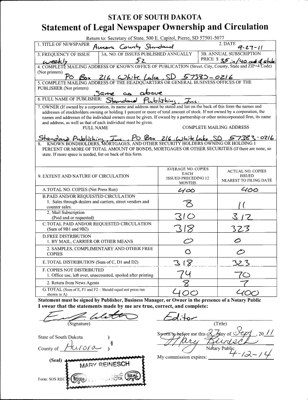 STATE OF SOUTH DAKOTA
Statement of Legal Newspaper Ownership and Circulation
Return to: Secretary of State, 500 E. Capitol, Pierre, SD 57501-5077
1. TITLE OF NEWSPAPER Aurora County Standard
2. DATE 9-27-11
3. FREQUENCY OF ISSUE weekly
3A. NO. OF ISSUES PUBLISHED ANNUALLY 52
3B. ANNUAL SUBSCRIPTION PRICE $
4. COMPLETE MAILING ADDRESS OF KNOWN OFFICE OF PUBLICATION (Street, City, County, State and ZIP+4 Code) (Not printers)
PO Box 216 White Lake SD 57383-0216
5. COMPLETE MAILING ADDRESS OF THE HEADQUARTERS OR GENERAL BUSINESS OFFICES OF THE PUBLISHER (Not printers)
Same as above
6. FULL NAME OF PUBLISHER: Standard Publishing, Inc.
7. OWNER (If owned by a corporation, its name and address must be stated and list on the back of this form the names and addresses of stockholders owning or holding 1 percent or more of total amount of stock. If not owned by a corporation, the names and addresses of the individual owners must be given. If owned by a partnership or other unincorporated firm, its name and address, as well as that of each individual must be given.)
FULL NAME COMPLETE MAILING ADDRESS
Standard Publishing, Inc. PO Box 216 White Lake SD 57383-0216
8. KNOWN BONDHOLDERS, MORTGAGES, AND OTHER SECURITY HOLDERS OWNING OR HOLDING 1 PERCENT OR MORE OF TOTAL AMOUNT OF BONDS, MORTGAGES OR OTHER SECURITIES (If there are none, so state. If more space is needed, list on back of this form.
9. EXTENT AND NATURE OF CIRCULATION
AVERAGE NO. COPIES EACH ISSUED PRECEDING 12 MONTHS
ACTUAL NO. COPIES ISSUED NEAREST TO FILING DATE
A. TOTAL NO. COPIES (Net Press Run) 400 400
B. PAID AND/OR REQUESTED CIRCULATION
1. Sales through dealers and carriers, street vendors and counter sales 8 11
2. Mail Subscription (Paid and/or requested) 310 312
C. TOTAL PAID AND/OR REQUESTED CIRCULATION (Sum of 9B1 and 9B2) 318 323
D. FREE DISTRIBUTION
1. BY MAIL, CARRIER OR OTHER MEANS 0 0
2. SAMPLES, COMPLIMENTARY AND OTHER FREE COPIES 0 0
E. TOTAL DISTRIBUTION (Sum of C, D1 and D2) 318 323
F. COPIES NOT DISTRIBUTED
1. Office use, left over, unaccounted, spoiled after printing 74 70
2. Return from News Agents 8 7
G. TOTAL (Sum of E, F1 and F2 - Should equal net press run shown in A) 400 400
Statement must be signed by Publisher, Business Manager, or Owner in the presence of a Notary Public
I swear that the statements made by me are true, correct, and complete:
Editor
(Signature) (Title)
State of South Dakota )
County of Aurora ) §
Sworn to before me this 27 day of Sept, 2011
Mary Reinesch
Notary Public
My commission expires: 4-12-14
(Seal)
MARY REINESCH
SEAL